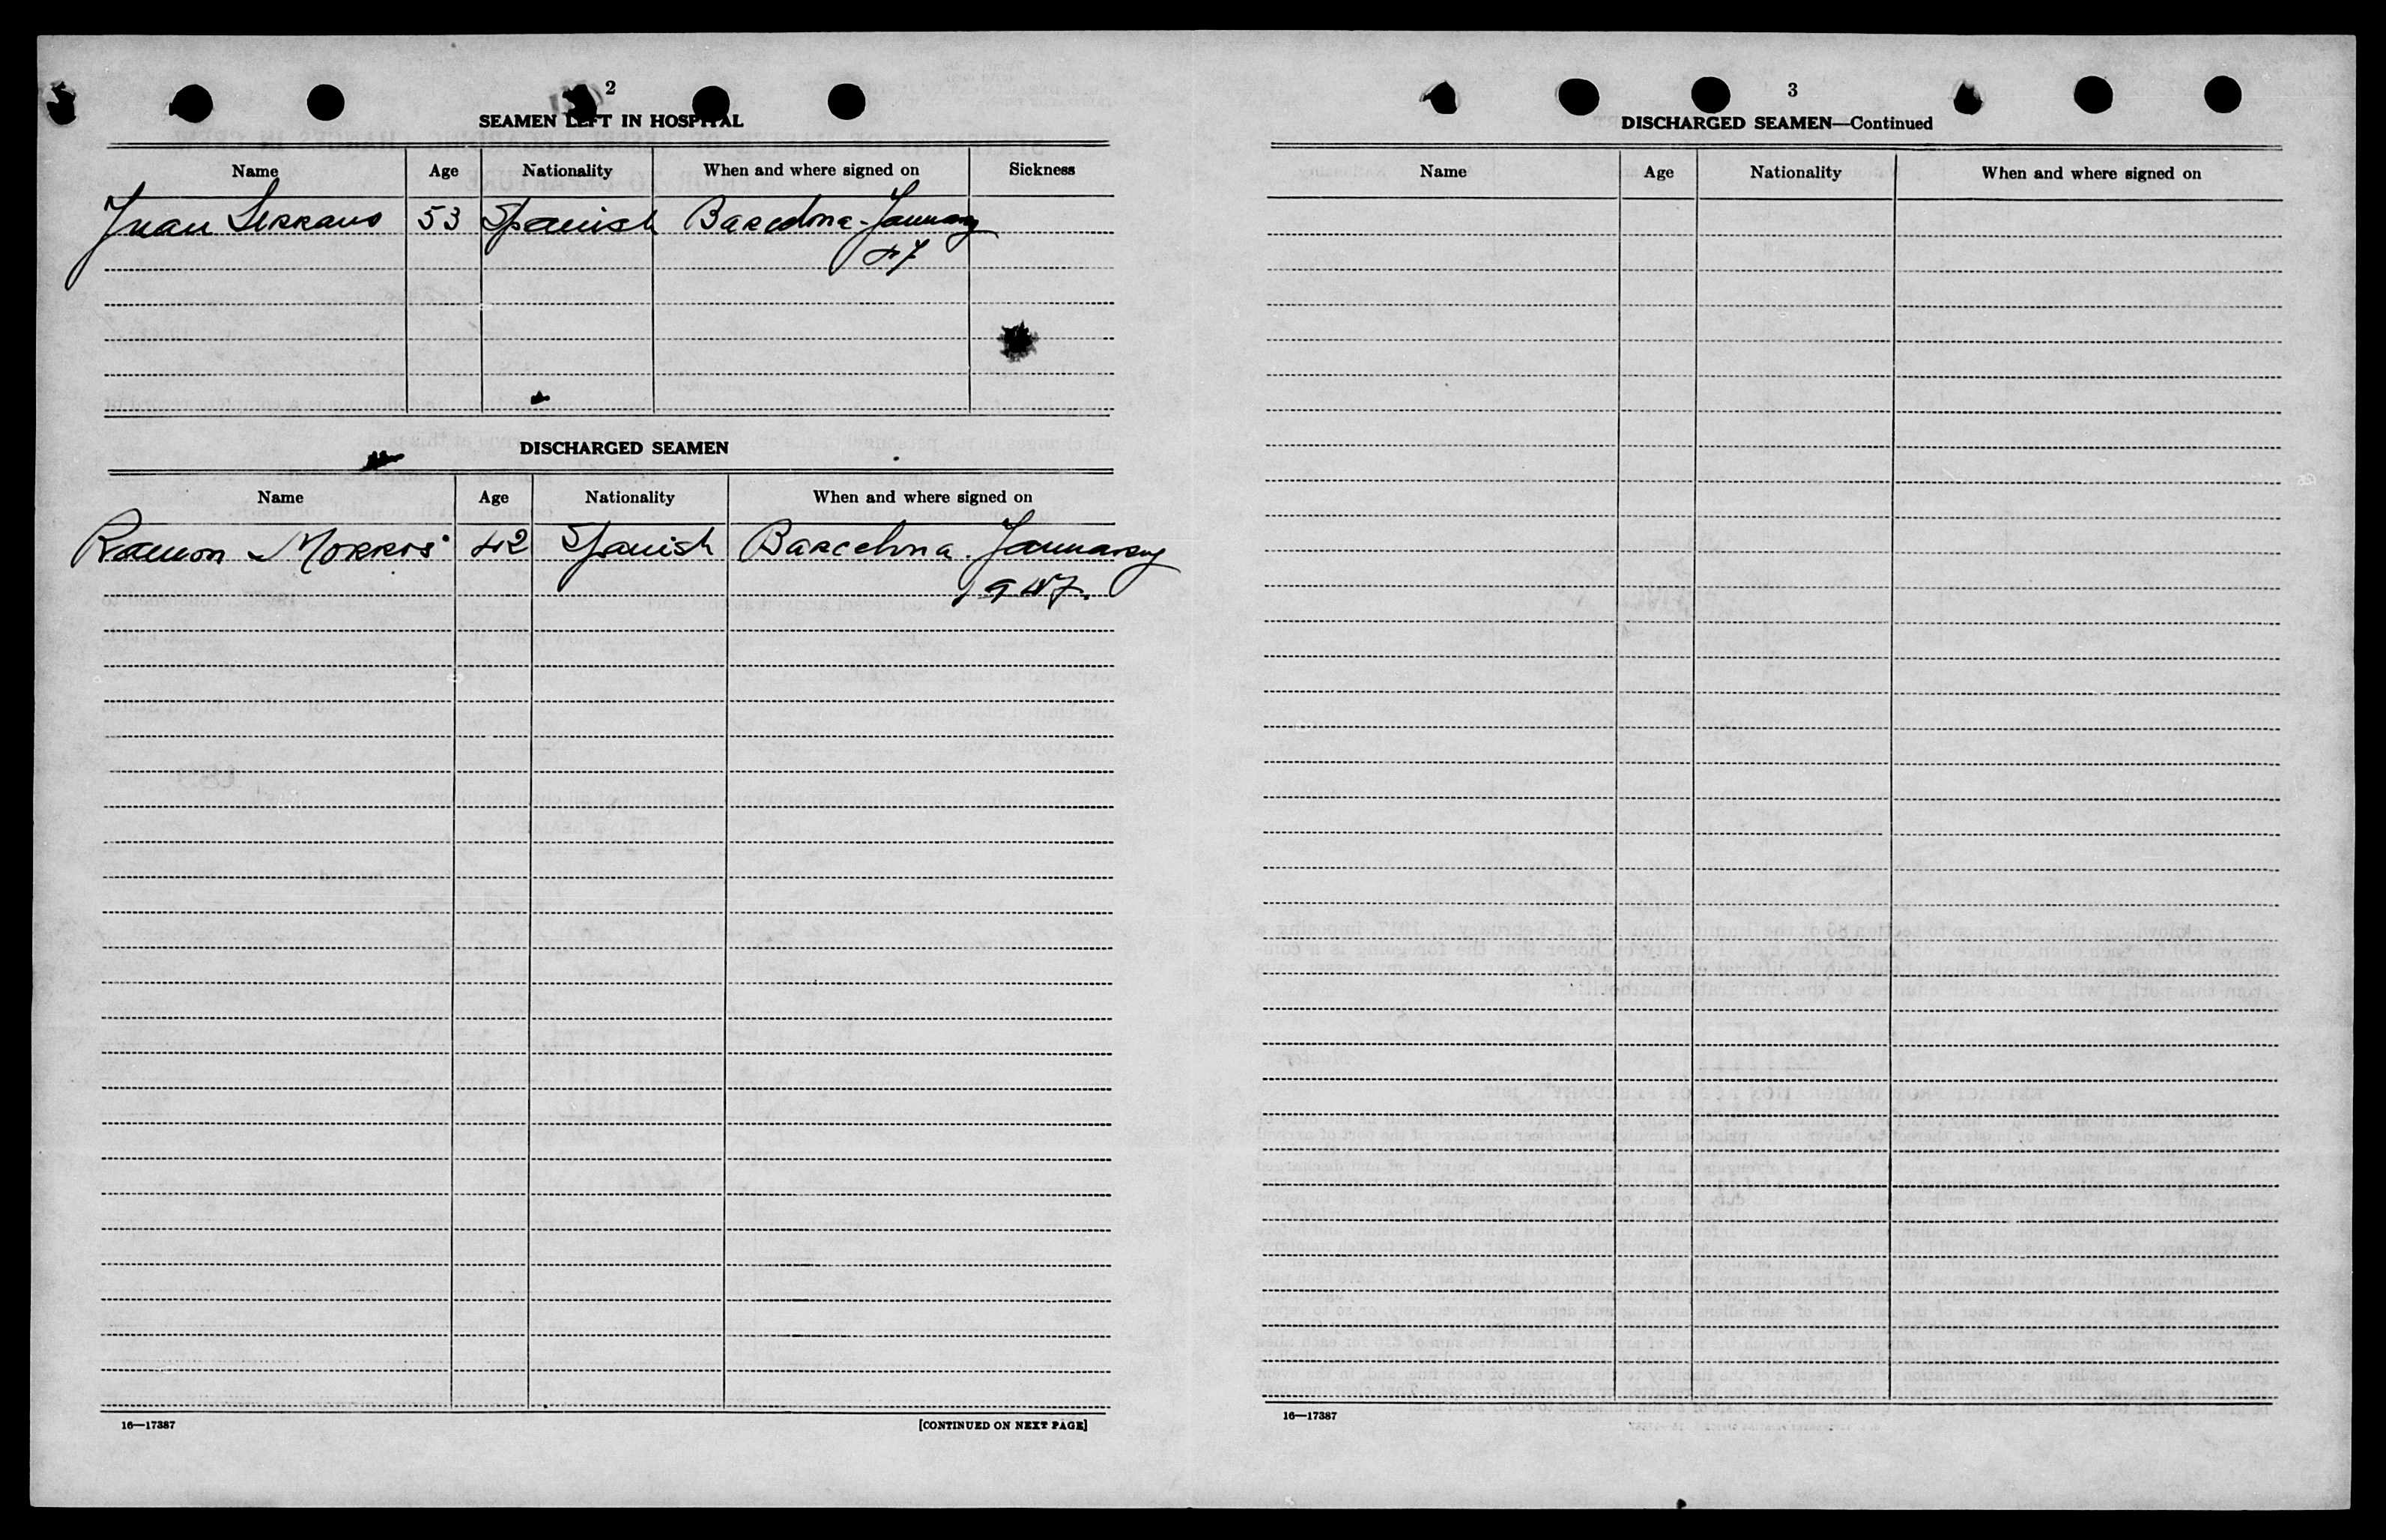 2
SEAMEN LEFT IN HOSPITAL
Name Age Nationality When and where signed on Sickness
Juan Serrano 53 Spanish Barcelona - January
47
DISCHARGED SEAMEN
Name Age Nationality When and where signed on
Ramon Morros 42 Spanish Barcelona. January
1947.
16—17387 [CONTINUED ON NEXT PAGE]
3
DISCHARGED SEAMEN—Continued
Name Age Nationality When and where signed on
16—17387